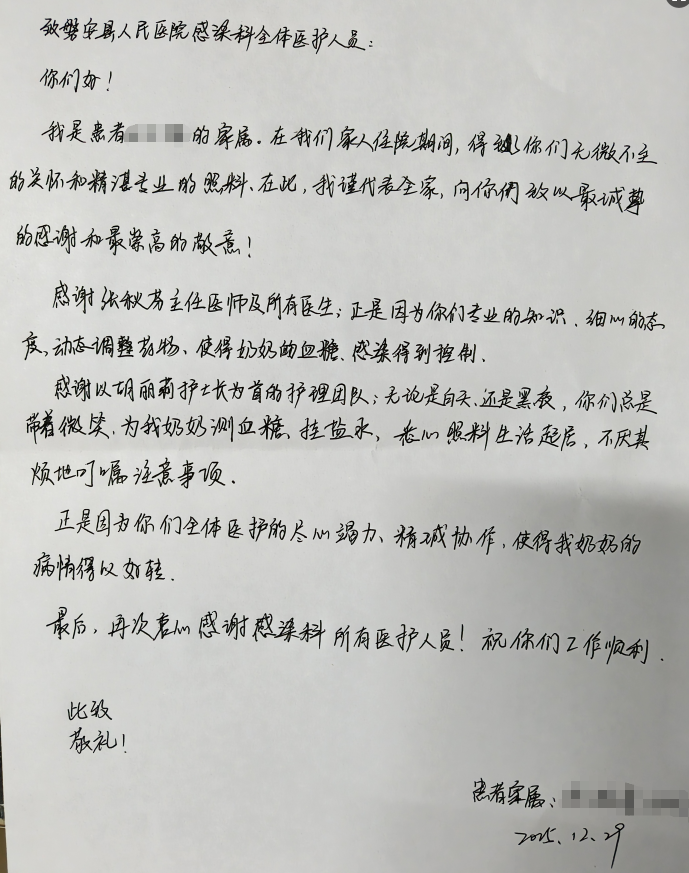 致磐安县人民医院感染科全体医护人员：
你们好！
我是患者的家属。在我们家人住院期间，得到你们无微不至
的关怀和精湛专业的照料。在此，我谨代表全家，向你们致以最诚挚
的感谢和最崇高的敬意！
感谢张秋芳主任医师及所有医生；正是因为你们专业的知识、细心的态
度、动态调整药物、使得奶奶的血糖、感染得到控制。
感谢以胡丽莉护士长为首的护理团队；无论是白天、还是黑夜，你们总是
带着微笑、为我奶奶测血糖、挂盐水，悉心照料生活起居，不厌其
烦地叮嘱注意事项。
正是因为你们全体医护的尽心竭力、精诚协作，使得我奶奶的
病情得以好转。
最后，再次衷心感谢感染科所有医护人员！祝你们工作顺利．
此致
敬礼！
患者家属：
2025.12.29